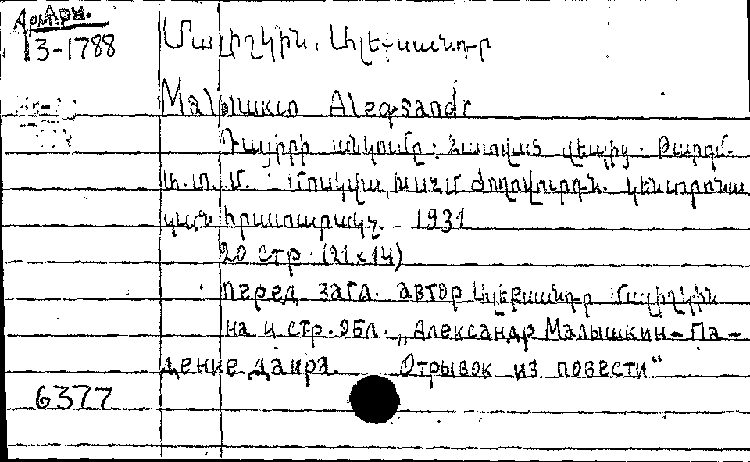 Арм.
13-1788
Մալիշկին, Ալեքսանդր
Malyškin Aleqsandr
Դայրրի անկումը: Հատված վեպից. Թարգմ.
Մոսկվա, ԽՍՀՄ ժողովուրդն. կենտրոնա
կան հրատարակչ. 1931
20 стр. (21x14)
перед загл. автор Ալեքսանդր Մալիշկին
на 4 стр. обл. „Александр Малышкин-Па-
дение даира. Отрывок из повести“
6377